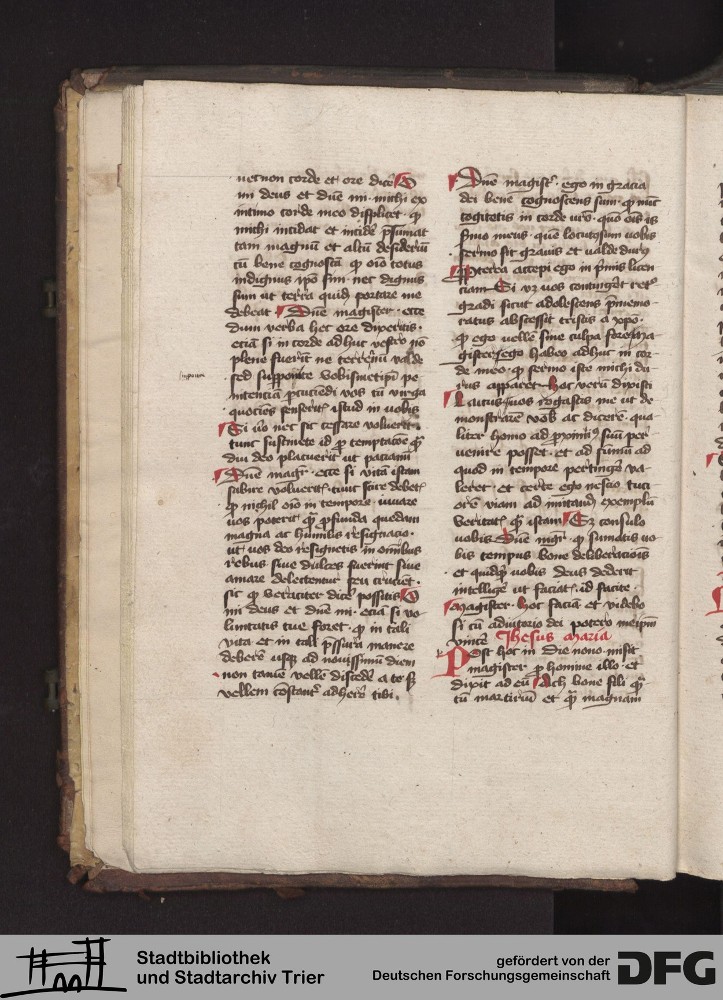 uel non corde et ore dice O
mi deus et dne mi michi ex
intimo corde meo displicet q
michi incidat et incide psumat
tam magnu et altu desideriu
cu bene cognosca q oio totus
indignus ipo sim nec dignus
sum ut terra quid portare me
debeat Dne magister ecce
dum verba hec ore dixeritis
etia si in corde adhuc vestro no
plene fuerit ne terremi valde
sed supponite vobismetipis pe
nitencia pcuciedi vos cu virga
quocies senserit istud in uobis
Si uo nec sic cessare voluerit
tunc sustinete id p temptacoe q
diu deo placuerit ut paciami
Dne mgr ecce si vita istam
subire volueritis tunc scire debet
q nichil oio in tempore iuuare
uos poterit q psunda quedam
magna ac humilis resignacio
ut uos deo resignetis in omibus
rebus siue dulces fuerint siue
amare delectentur seu crucient
sic q veraciter dice possitis O
mi deus et dne mi etia si vo
luntatis tue foret q in tali
vita et in tali pssura manere
debere usq ad nouissimu diem
non tame velle discede a te s
vellem costant adhere tibi
Dne magist ego in gracia
dei bene cognoscens sum q nuc
cogitetis in corde uro quo ois is
smo meus que locutus sum uobis
sermo sit grauis et valde durus
ppterea accepi ego in pmis licen
ciam Si vz uos contingeret ret
gradi sicut adolescens pmemo
ratus abscessit tristis a xpo
q ego uelle sine culpa fore Ma
gister ego habeo adhuc in cor
de meo q sermo iste michi du
rus apparet Hoc veru dixisti
uos rogastis me ut de
monstrare vob ac dicere qua
liter homo ad pximu suu per
uenire posset et ad sumu ad
quod in tempore pertinge va
leret et certe ego nescio tuci
ore viam ad mittand exemplu
veritat q istam Ez consulo
uobis Dne mgr q sumatis uo
bis tempus bone deliberacionis
et quidq uobis deus dederit
intellige ut faciat id facite
Magister hoc facia et videbo
si cu adiutorio dei potero meipm
vince Jhesus Maria
Post hoc in die nono misit
magister p homine illo et
dixit ad eu Ach bone fili q
tu martiriu et q magnam
Stadtbibliothek
und Stadtarchiv Trier
gefördert von der
Deutschen Forschungsgemeinschaft
DFG